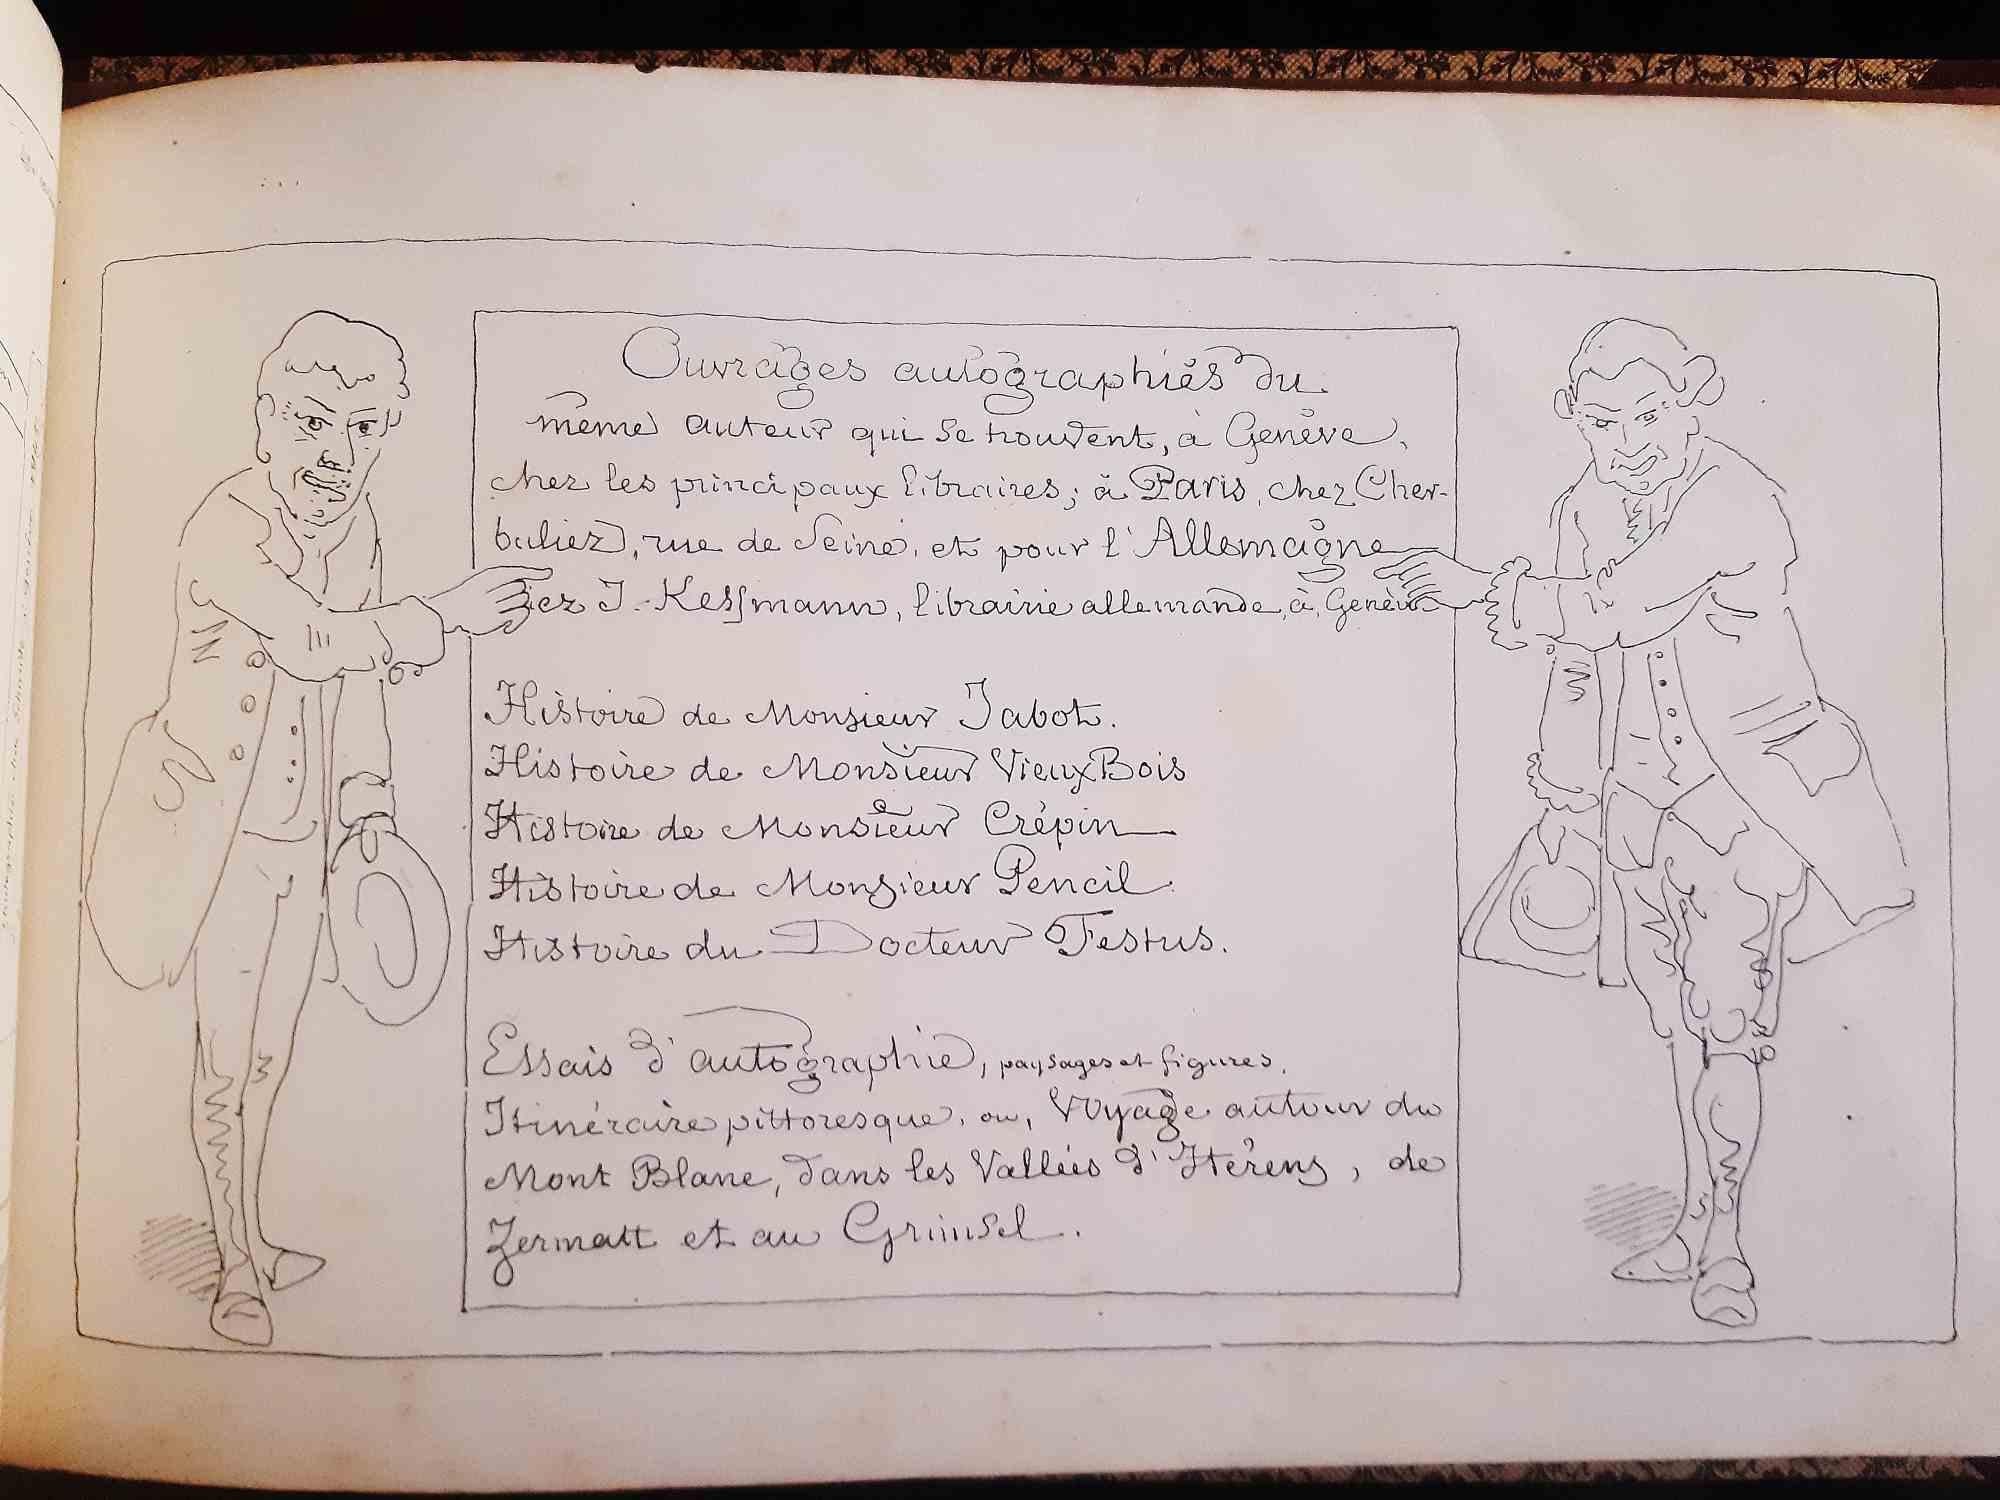 Ouvrages autographiés du
même auteur qui se trouvent, à Genève,
chez les principaux libraires; à Paris, chez Cher-
buliez, rue de Seine, et pour l'Allemagne
ez J. Kessmann, librairie allemande, à Genève
Histoire de Monsieur Jabot.
Histoire de Monsieur Vieux Bois
Histoire de Monsieur Crépin
Histoire de Monsieur Pencil.
Histoire du Docteur Festus.
Essais d'autographie, paysages et figures.
Itinéraire pittoresque, ou, Voyage autour du
Mont Blanc, dans les Vallées d'Hérens, de
Zermatt et au Grimsel.